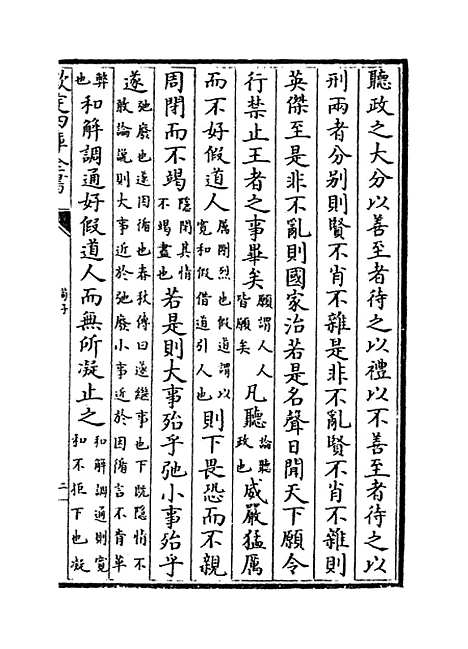 聽政之大分以善至者待之以禮以不善至者待之以
刑兩者分别則賢不肖不雜是非不亂賢不肖不雜則
英傑至是非不亂則國家治若是名聲日聞天下願令
行禁止王者之事畢矣願謂人人皆願矣凡聽論聽政也威嚴猛厲
而不好假道人厲剛烈也假道謂以寛和假借道引人也則下畏恐而不親
周閉而不竭隱閉其情不竭盡也若是則大事殆乎弛小事殆乎
遂弛廢也遂因循也春秋傳曰遂繼事也下既隱情不敢論説則大事近於弛廢小事近於因循言不肯革
弊也和解調通好假道人而無所凝止之和解調通則寛和不拒下也凝
欽定四庫全書
荀子
二